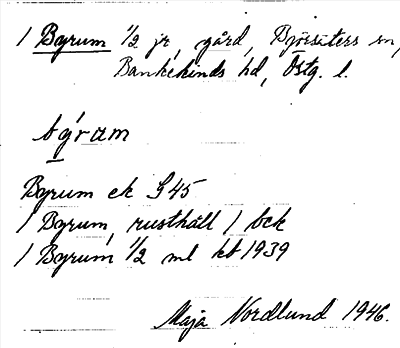 1 Byrum 1/2 jr, gård, Björsäters sn,
Bankekinds hd, Östg. l.
býram
Byrum ek S45
1 Byrum, rusthåll / bck
1 Byrum 1/2 ml kb 1939
Maja Nordlund 1946.